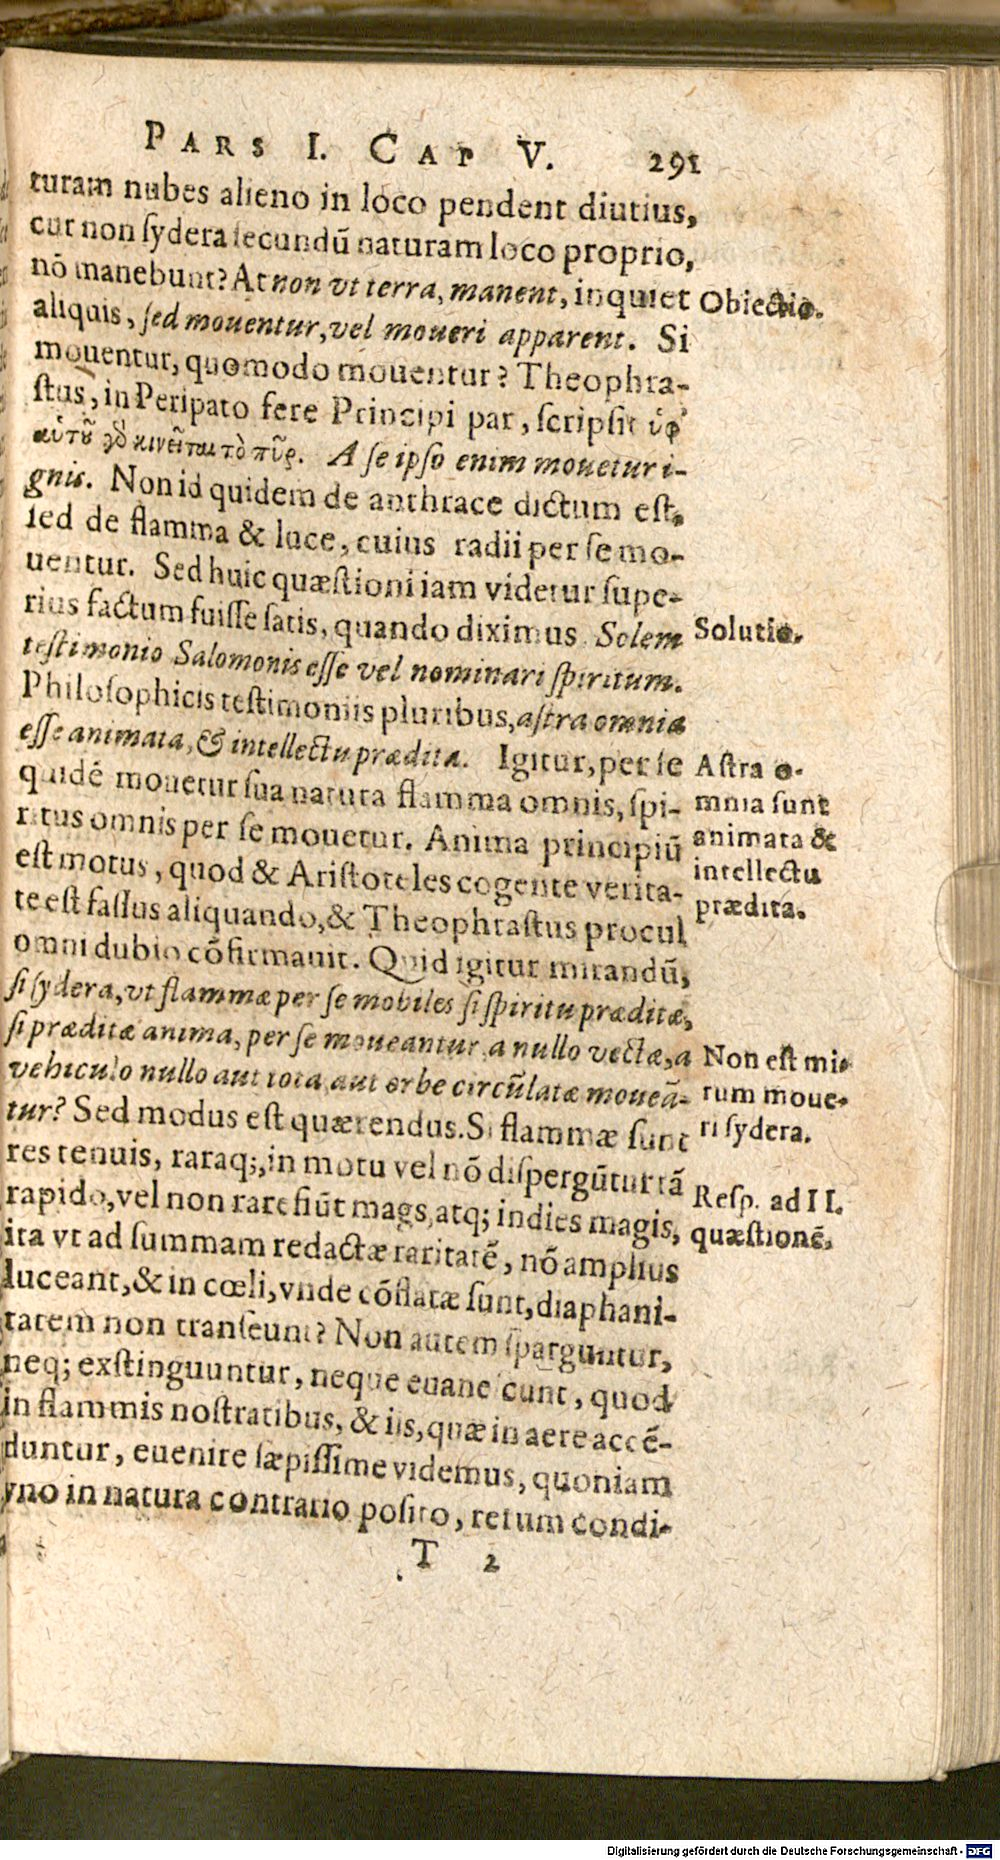 PARS I. CAP V. 291
turam nubes alieno in loco pendent diutius,
cur non ſydera ſecundū naturam loco proprio,
nō manebunt? At non vt terra, manent, inquiet
Obiectio.
aliquis, ſed mouentur, vel moueri apparent. Si
mouentur, quomodo mouentur? Theophra-
ſtus, in Peripato fere Principi par, ſcripſit ὑφ'
αὑτοῦ γὸ κινεῖται τὸ πῦρ. A ſe ipſo enim mouetur i-
gnis. Non id quidem de anthrace dictum eſt,
ſed de flamma & luce, cuius radii per ſe mo-
uentur. Sed huic quæſtioni iam videtur ſupe-
rius factum fuiſſe ſatis, quando diximus Solem
Solutio.
teſtimonio Salomonis eſſe vel nominari ſpiritum.
Philoſophicis teſtimoniis pluribus, aſtra omnia
eſſe animata, & intellectu prædita. Igitur, per ſe
Aſtra o-
quidē mouetur ſua natura flamma omnis, ſpi-
mnia ſunt
ritus omnis per ſe mouetur. Anima principiū
animata &
eſt motus, quod & Ariſtoteles cogente verita-
intellectu
te eſt faſſus aliquando, & Theophraſtus procul
prædita.
omni dubio cōfirmauit. Quid igitur mirandū,
ſi ſydera, vt flammæ per ſe mobiles ſi ſpiritu præditæ,
ſi præditæ anima, per ſe moueantur, a nullo vectæ, a
Non eſt mi-
vehiculo nullo aut rota, aut orbe circūlatæ moueā-
rum moue-
tur? Sed modus eſt quærendus. Si flammæ ſunt
ri ſydera.
res tenuis, raraq;, in motu vel nō diſpergūtur tā
rapido, vel non rarefiūt mags, atq; indies magis,
Reſp. ad II.
quæſtionē.
ita vt ad ſummam redactæ raritatē, nō amplius
luceant, & in cœli, vnde cōflatæ ſunt, diaphani-
tatem non tranſeunt? Non autem ſparguntur,
neq; exſtinguuntur, neque euaneſcunt, quod
in flammis noſtratibus, & iis, quæ in aere accē-
duntur, euenire ſæpiſſime videmus, quoniam
vno in natura contrario poſito, rerum condi-
T 2
Digitalisierung gefördert durch die Deutsche Forschungsgemeinschaft - DFG